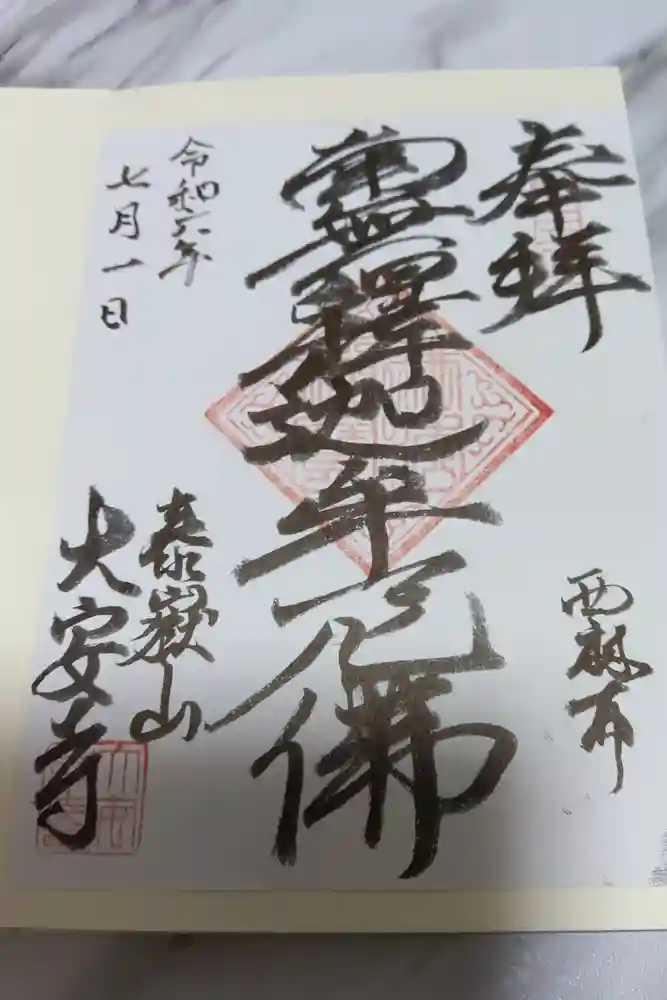 奉拝
西麻布
南無釋迦牟尼佛
令和六年
七月一日
泰嶽山
大安寺